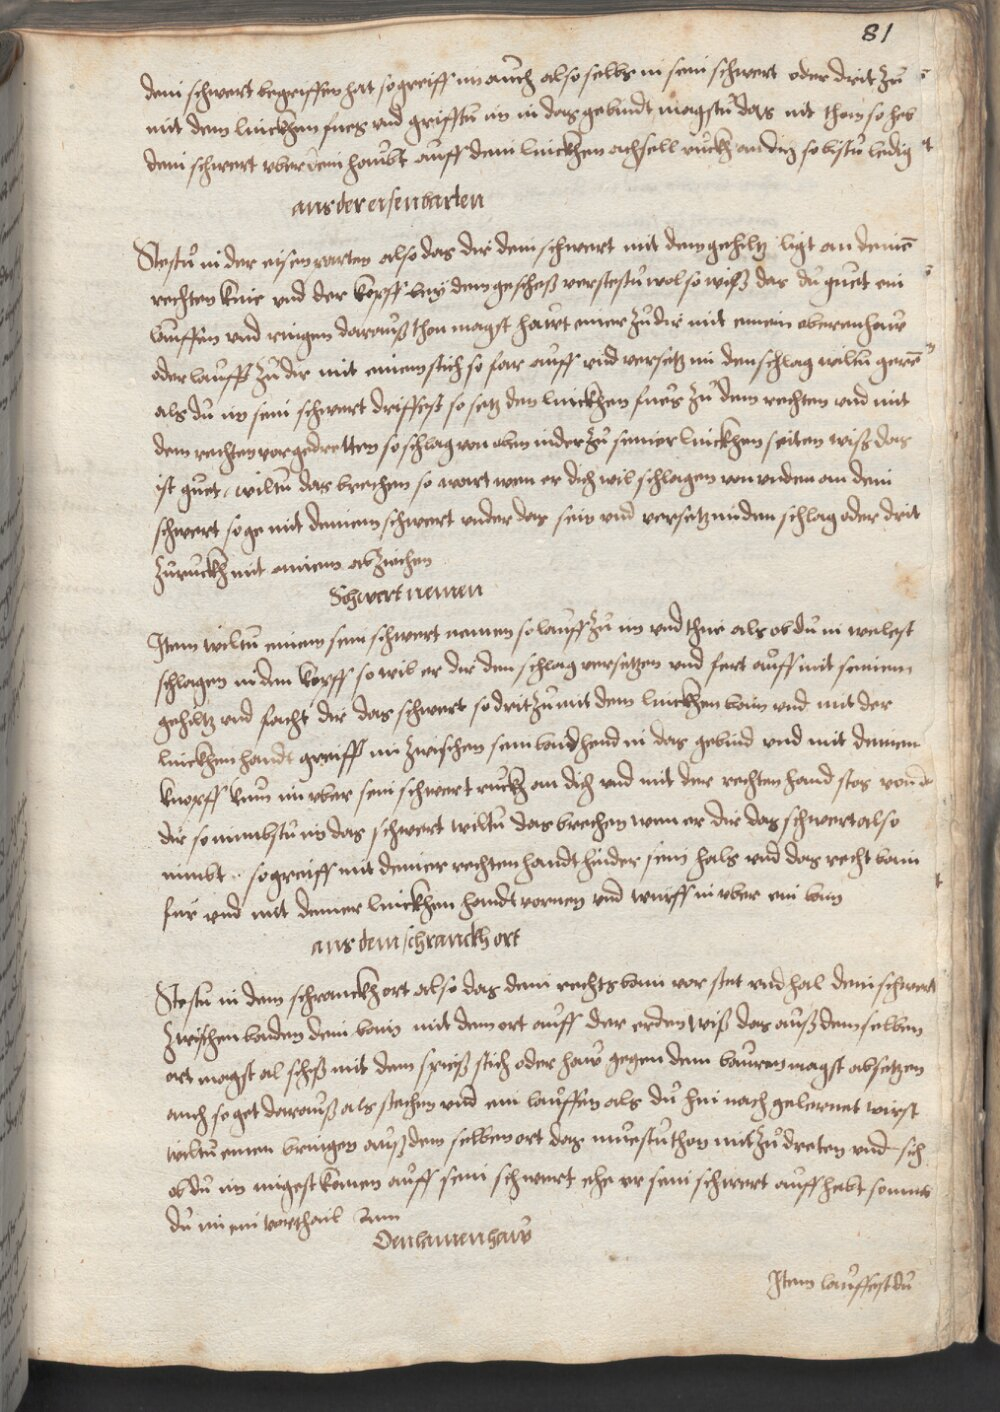 81
dein schwert begriffen hat so greiff im auch also selbs in sein schwert oder drit zu
mit dem linckhen fues vnd grifftu im in das gebindt magstu das nit thon so heb
dein schwert vber dein haubt auff dein linckhen achsell ruckh an dich so bistu ledig
aus der eisenvarten
Stestu in der eisenvarten also das dir dein schwert mit dem gehiltz ligt an deinē
rechten knie vnd der knopff bey dem gesches verstestu wol so wiss das du guet ein
lauffen vnd ringen darauß thon magst haut einer zu dir mit einem oberenhaw
oder laufft zu dir mit einem stich so far auff vnd versetz im den schlag wiltu gerē
als du im sein schwert driffest so setz den linckhen fues zu dem rechten vnd mit
dem rechten vorgedretten so schlag von oben nider zu seiner linckhen seiten wiss das
ist guet, wiltu das brechen so wart wen er dich wil schlagen von vnden an dein
schwert so ge mit deinem schwert vnder das sein vnd versetz im den schlag oder drit
zuruckh mit ainem abziechen
Schwert nemen
Item wiltu einem sein schwert nemen so lauff zu im vnd thue als ob du in welest
schlagen in den kopff so wil er dir den schlag versetzen vnd fert auff mit seinem
gehiltz vnd facht dir das schwert so drit zu mit dem linckhen bain vnd mit der
linckhen handt greiff im zwischen sein baid hend in das gebind vnd mit deinem
knopff kum im vber sein schwert ruckh an dich vnd mit der rechten hand stos von
dir so nimbstu im das schwert wiltu das brechen wen er dir das schwert also
nimbt so greiff mit deiner rechten handt hinder sein hals vnd das recht bain
für vnd mit deiner linckhen handt vornen vnd wurff in vber ein bain
aus dem schranckh ort
Stestu in dem schranckhort also das dein rechts bain vor stet vnd hal dein schwert
zwischen baiden dein bain mit dem ort auff der erden wiß das auß dem selben
ort magst al schiß mit dem spieß stich oder haw gegen dem bauren magst absetzen
auch so get darauß als stechen vnd ein lauffen als du hin nach gelernet wirst
wiltu einen bringen auß dem selben ort das muestu thon mit zu dreten vnd sich
ob du im mugest komen auff sein schwert ehe er sein schwert auffhebt so nims
du im ein vorthail
Den lamen haw
Item lauffest du